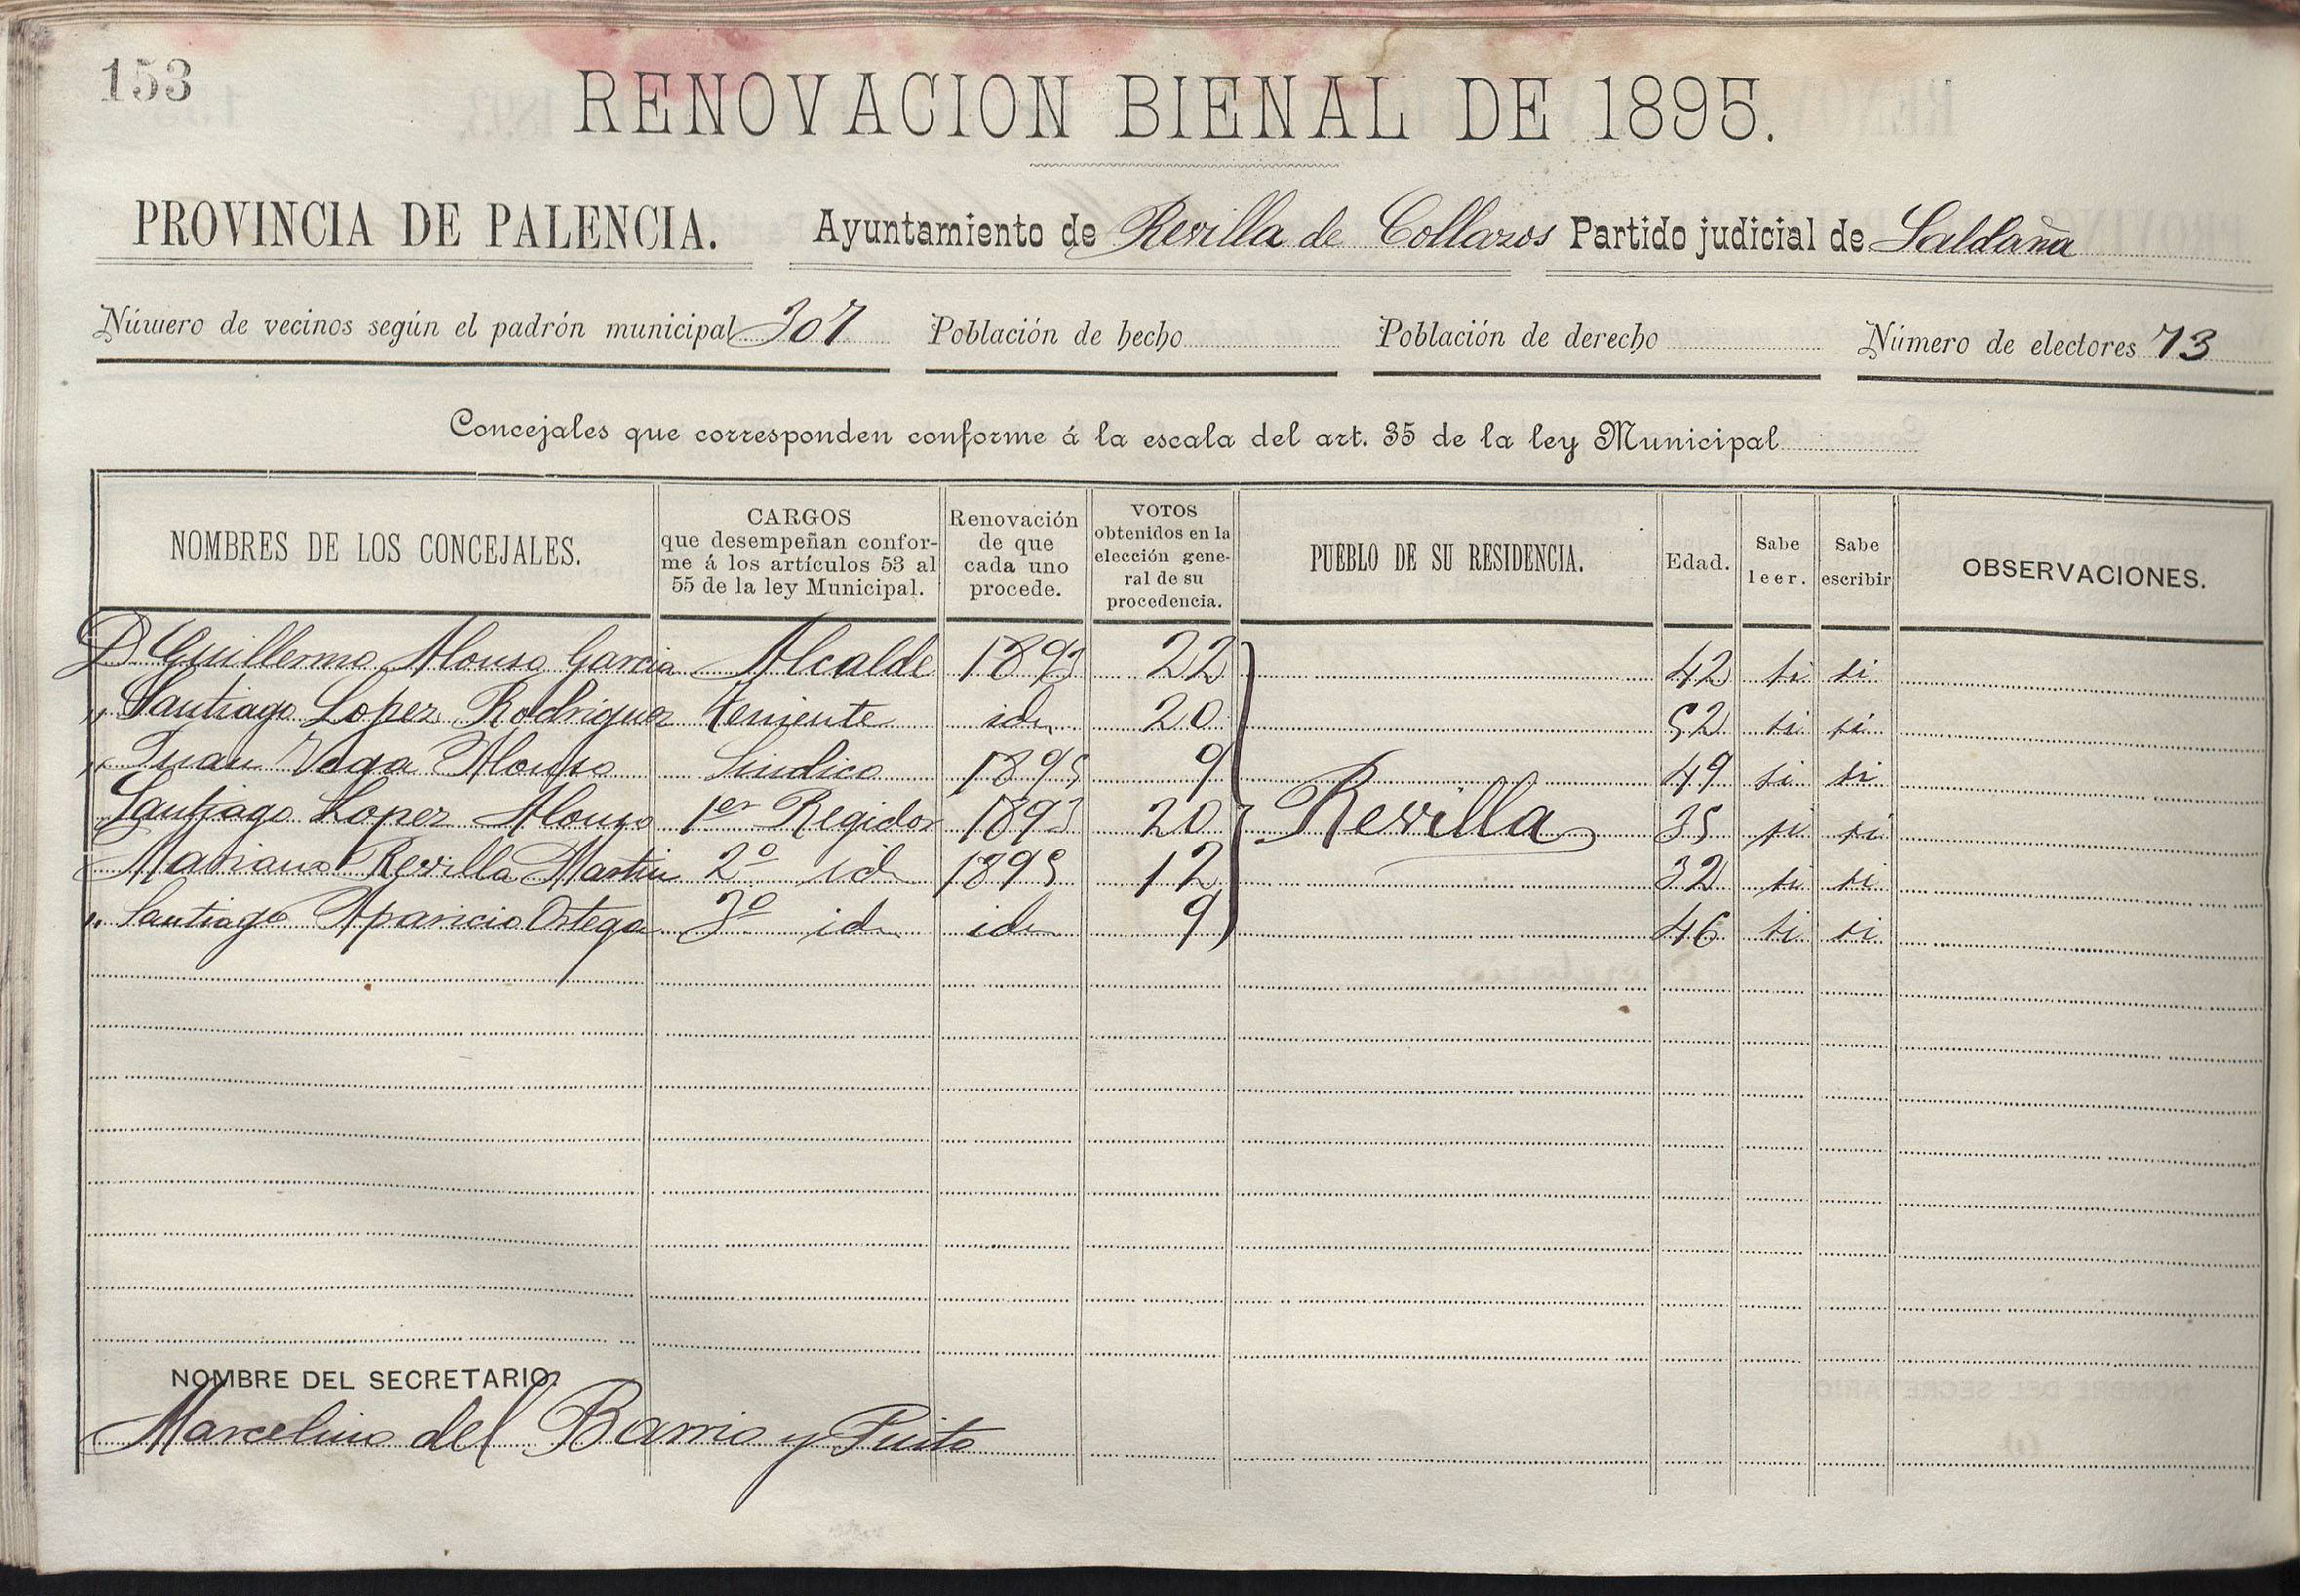 153
RENOVACION BIENAL DE 1895.
PROVINCIA DE PALENCIA. Ayuntamiento de Revilla de Collazos Partido judicial de Saldaña
Número de vecinos según el padrón municipal 307 Población de hecho Población de derecho Número de electores 73
Concejales que corresponden conforme á la escala del art. 35 de la ley Municipal
NOMBRES DE LOS CONCEJALES.
CARGOS
que desempeñan confor-
me á los artículos 53 al
55 de la ley Municipal.
Renovación
de que
cada uno
procede.
VOTOS
obtenidos en la
elección gene-
ral de su
procedencia.
PUEBLO DE SU RESIDENCIA.
Edad.
Sabe
leer.
Sabe
escribir
OBSERVACIONES.
D. Guillermo Alonso Garcia Alcalde 1893 22 42 si si
" Santiago Lopez Rodriguez Teniente id. 20 52 si si
" Juan Vega Alonso Sindico 1895 9 49 si si
Santiago Lopez Alonso 1er Regidor 1893 20 Revilla 35 si si
Mariano Revilla Martin 2º id 1895 12 32 si si
" Santiago Aparicio Ortega 3º id. id. 9 46 si si
NOMBRE DEL SECRETARIO.
Marcelino del Barrio y